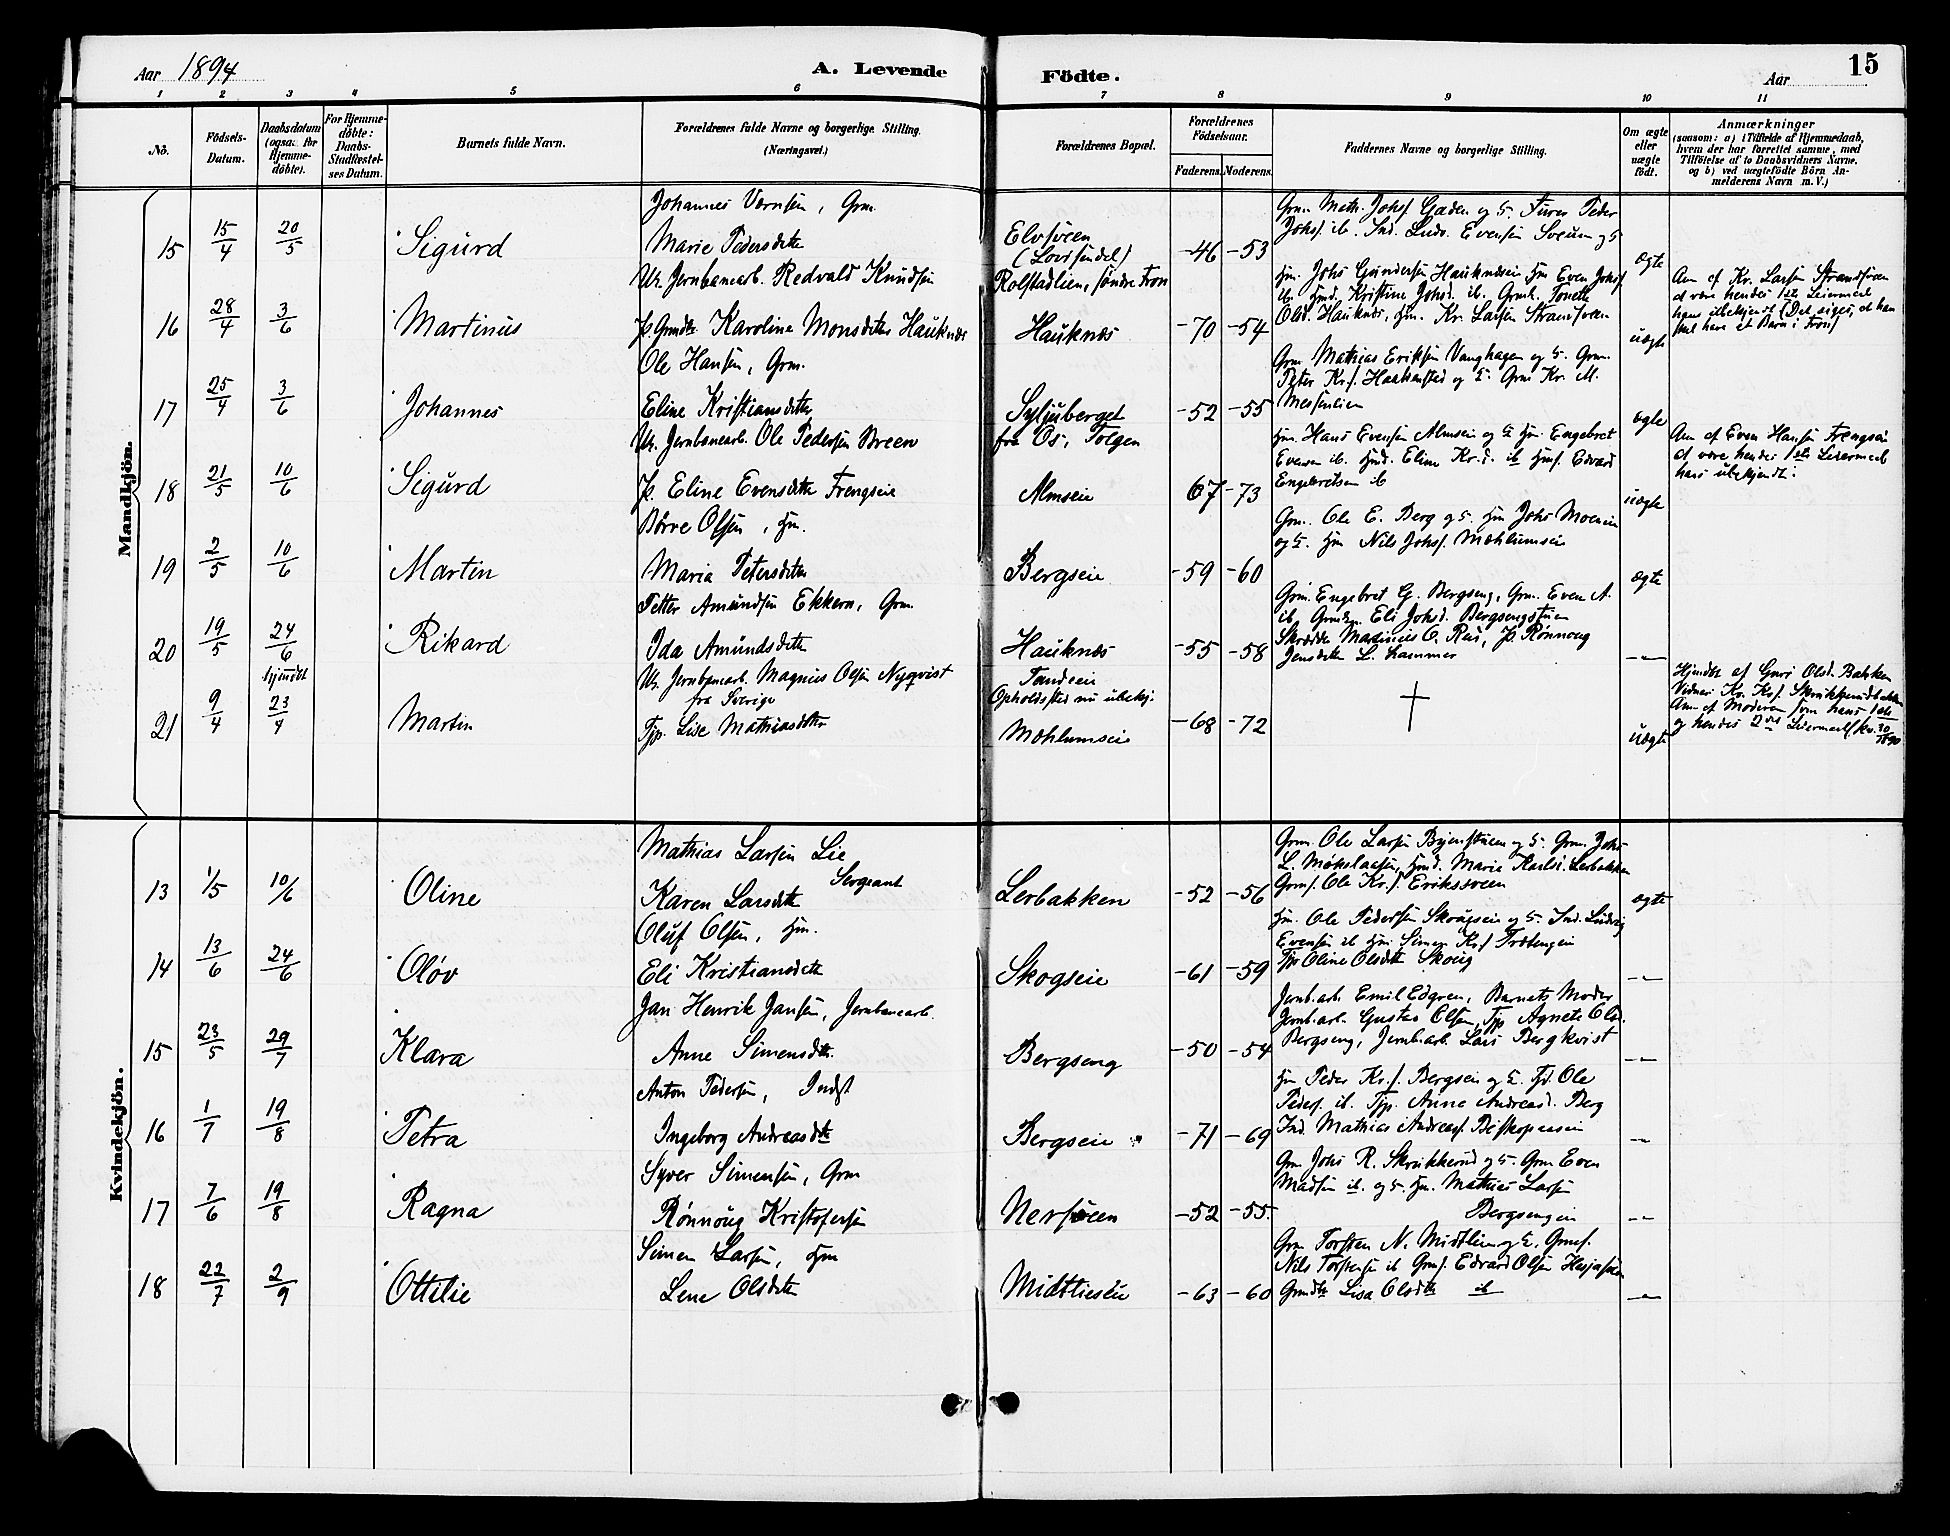 Aar 1894
A. Levende Födte.
Aar
15
1 2 3 4 5 6 7 8 9 10 11
No.
Födsels-Datum.
Daabsdatum (ogsaa for Hjemmedöbte).
For Hjemmedöbte: Daabs-Stadfæstelses Datum.
Barnets fulde Navn.
Forældrenes fulde Navne og borgerlige Stilling. (Næringsvei.)
Forældrenes Bopæl.
Forældrenes Födselsaar.
Faderens. Moderens.
Faddernes Navne og borgerlige Stilling.
Om ægte eller uægte födt.
Anmærkninger
(saasom: a) i Tilfælde af Hjemmedaab, hvem der har forrettet samme, med Tilföielse af to Daabsvidners Navne, og b) ved uægtefödte Börn Anmelderens Navn m. V.)
Mandkjön.
15 15/4 20/5 Sigurd
Johannes , Grm.
Marie Pedersdtr
Elvsveen
-46 -53
Grm. Math. Johs. Gaden og
Johs. ib. Ind. Ludv. Evensen Sveum og
ægte
16 28/4 3/6 Martinus
Uk. Jernbanearb. Redvald Knudsen
P. Grmdtr Karoline Monsdatter Hauknæs
Rolstadlien, søndre Fron
Hauknæs
-70 -54
Hm. Johs Gundersen Hauknæsein Hm Even Johs.
ib. Hmd. Kristine Johsd. ib. Grmk. Tonette
Olsd. Hauknæs, Hm. Kr. Larsen Strandsveen
uægte
Anm af Kr. Larsen Strandsveen
at være hendes 1ste Leiermaal
hans ubekjendt (Det siges, at han
skal have et Barn i Fron)
17 25/4 3/6 Johannes
Ole Hansen, Grm.
Eline Kristiansdatter
Syljuberget
-52 -55
Grm Mathias Eriksen Vaaghagen og Grm.
Peter Kr.s. Haakenstad og Grm Kr. M.
Messenlien
ægte
18 21/5 10/6 Sigurd
Uk. Jernbanearb. Ole Pedersen Breen
P. Eline Evensdatter Frengseie
fra Os, Tolgen
Almseie
67 -73
Hm. Hans Evensen Almsein og Hm. Engebret
Evensen ib. Hmd. Eline Kr.d. ib Hms. Edvard
Engebretsen ib
uægte
Anm af Even Hansen Frengsei
at være hendes 1ste Leiermaal
hans ubekjendt.
19 2/5 10/6 Martin
Børre Olsen, Hm.
Maria Petersdtr
Bergseie
-59 -60
Grm. Ole E. Berg og Hm Johs Moenein
og Hm Nils Johs. Mæhlumseie
ægte
20 19/5 24/6 Rikard
Petter Amundsen Ekkern, Grm.
Ida Amundsdtr
Hauknæs
-55 -58
Grm. Engebret G. Bergseng, Grm. Even A.
ib, Grmdn. Eli Johsd. Bergsengstuen
Skrædder Martinius O. Rus, P. Rønnoug
Jensdatter L. hammer
-"-
21 9/4 Hjemdbt 23/4 Martin
Uk. Jernbanearb. Magnus Olsen Nyqvist
fra Sverige
Tjp. Lise Mathiasdatter
Tandseie
Opholdssted nu ubekj.
Mæhlumseie
-68 -72
†
uægte
Hjemdbt af Guri Olsd. Bakken
Vidner Kr. Krs. Skrukkerudbakken
Anm af Moderen som hans 1ste
og hendes 2det Leiermaal
Kvindekjön.
13 1/5 10/6 Oline
Mathias Larsen Lie
Sergeant
Karen Larsdtr
Lerbakken
-52 -56
Grm. Ole Larsen og Grm. Johs
L. , Hmd. Marie Karlsd. Lerbakken
Grms. Ole Kr.s. Erikssveen
ægte
14 13/6 24/6 Oløv
Oluf Olsen, Hm.
Eli Kristiansdtr
Skogseie
-61 -59
Hm. Ole Pedersen Skougsein og Ind. Ludvig
Evensen ib Hm Simen Kr.s Trætengein
Tjp Oline Olsdtr Skoug
-"-
15 23/5 29/7 Klara
Jan Henrik Jansen, Jernbanearb.
Anne Simensdtr.
Bergseng
-50 -54
Jernb.arb. Emil Edgren, Barnets Moder
Jernb.arb. Gustav Olsen, Tjp Agnete Ols.
Bergseng, Jernb.arb. Lars Bergkvist
-"-
16 1/7 19/8 Petra
Anton Pedersen, Indst
Ingeborg Andreasdtr
Bergseie
-71 -69
Hm Peder Kr.s. Bergsein og Fd. Ole
Peders. ib. Tjp. Anne Andreasd. Berg
Ind. Mathias Andreas. Biskopensein
-"-
17 7/6 19/8 Ragna
Syver Simensen, Grm
Rønnoug Kristofersen
Nersveen
-52 -55.
Grm Johs R. Skrukkerud og Grm Even
Madsen ib. og Hm. Mathias Larsen
Bergsengein
-"-
18 22/7 2/9 Ottilie
Simen Larsen, Hm
Lene Olsdtr
Midtlieseie
-63 -60
Grm Torsten N. Midtlien og Grms.
Nils Torstensen ib Grms. Edvard Olsen
Grmdtr Lisa Olsdtr ib
-"-